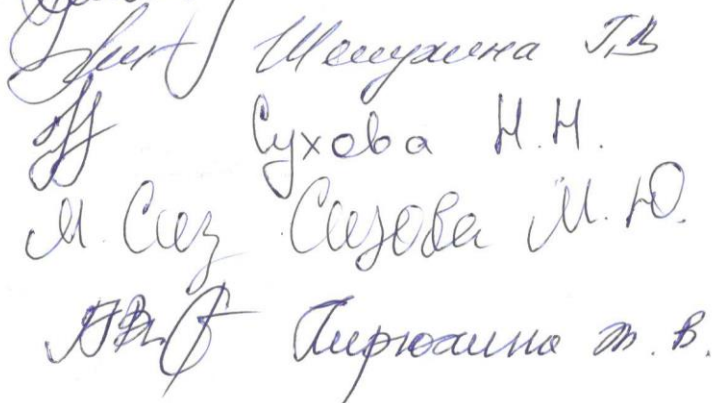 Шепухина Т.В
Сухова Н.Н.
М. Сиз Сизова М.Ю.
Пирюхина т. в.